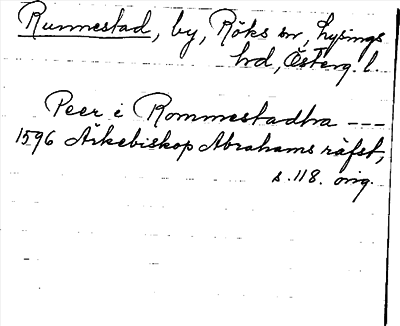 Runnestad, by, Röks sn, Lysings
hd, Österg. l.
Peer i Rommestadha ---
1596 Ärkebiskop Abrahams räfst,
s. 118. orig.